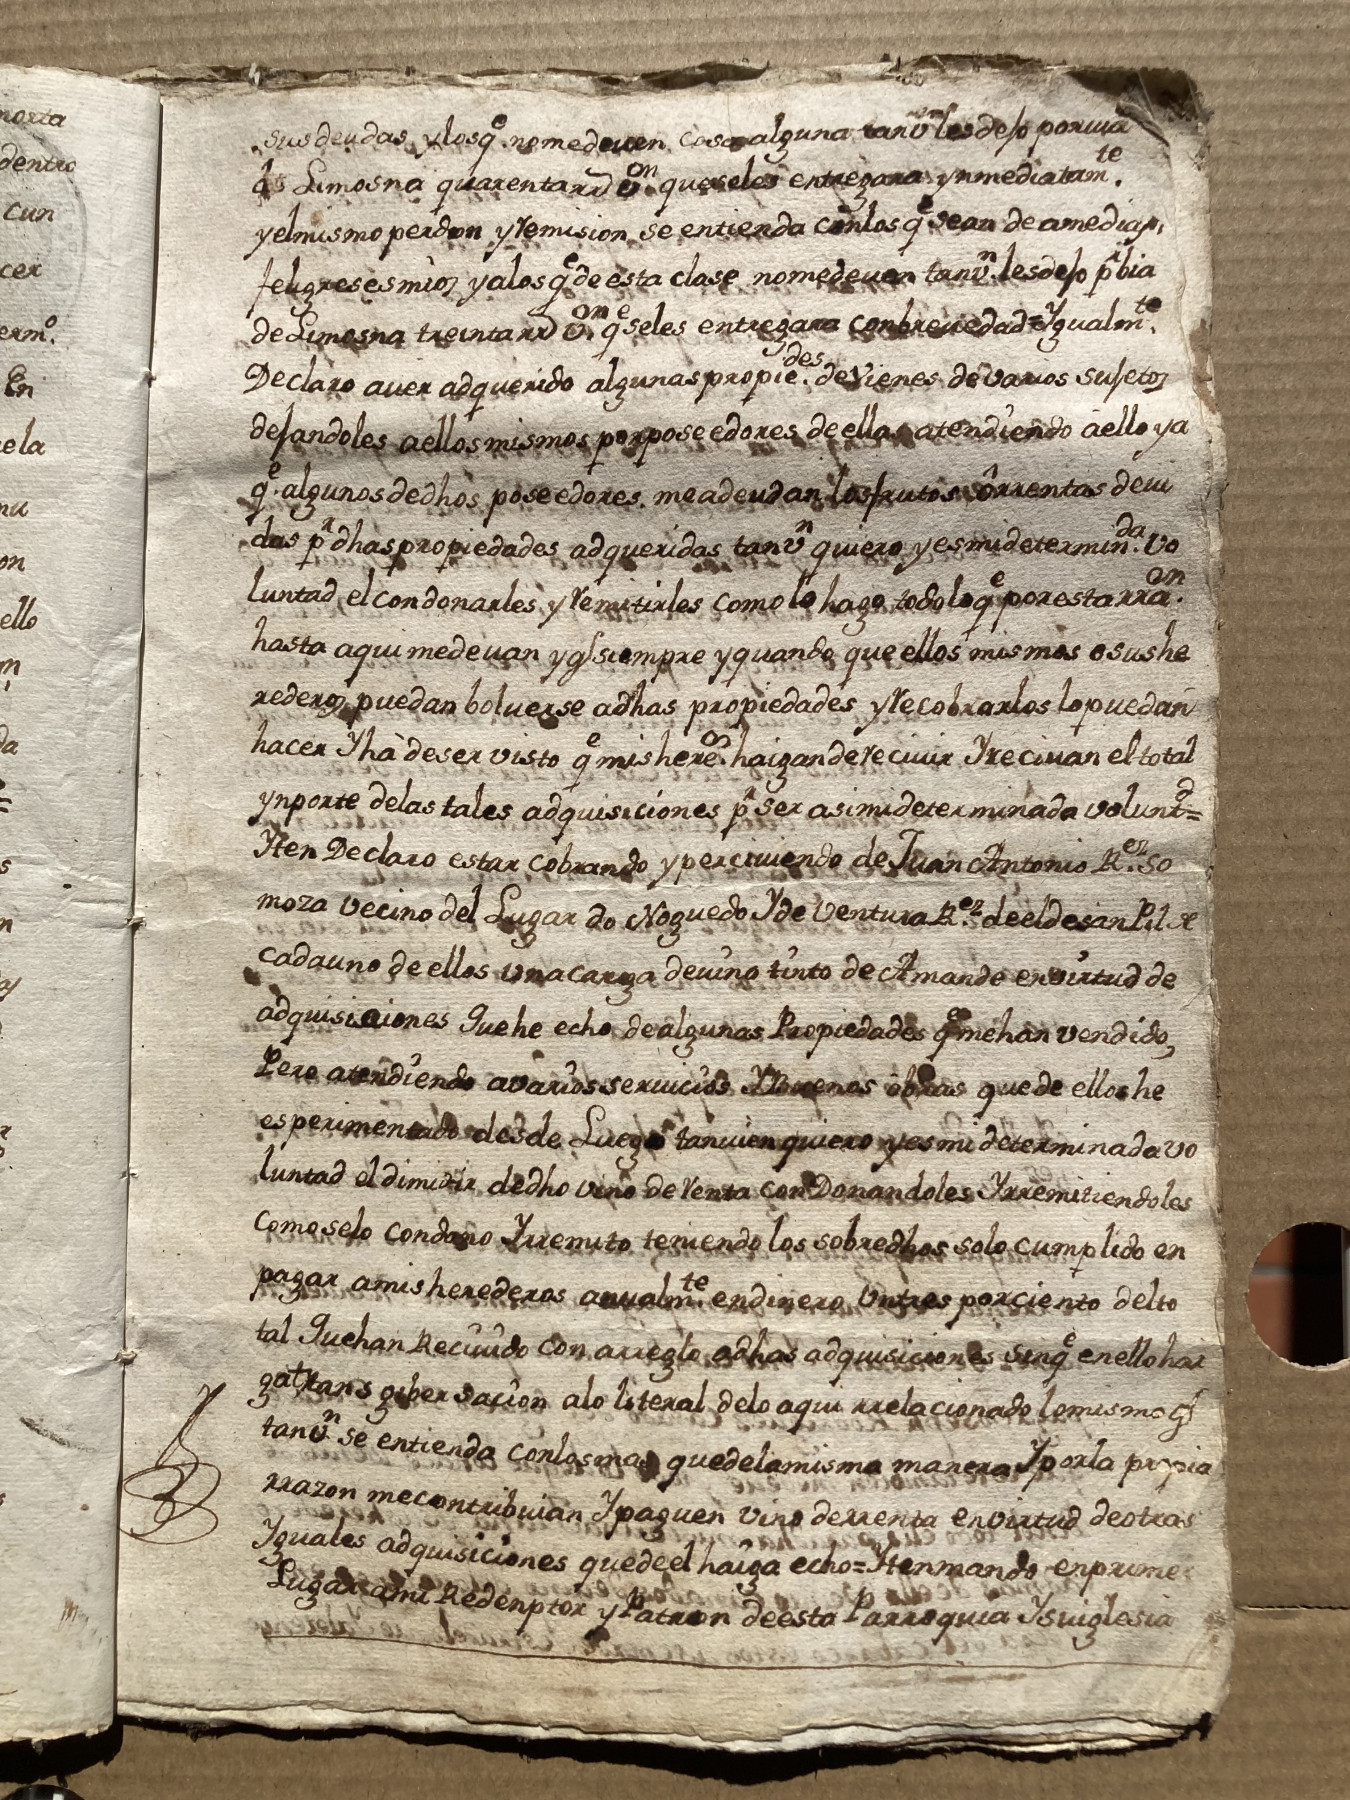 sus deudas, y los q.e no me deuen cosa alguna tanv.n les dejo por uia
de Limosna quarenta rr.s v.on que seles entregara ynmediatam.te
y el mismo perdon y remision se entienda con los q.e sean de a medias,
feligreses mios, y a los q.e de esta clase no me deuen tanv.n les dejo p.r bia
de Limosna treinta rr.s v.on q.e seles entregara con breuedad = Ygualm.te
Declaro auer adquerido algunas propie.des de Vienes de varios sujetos
dejandoles a ellos mismos por poseedores de ellas atendiendo á ello y a
q.e algunos de dhos poseedores me adeudan los frutos ô rrentas deui
das p.r dhas propiedades adqueridas tanv.n quiero y es mi determin.da vo
luntad el condonarles y remitirles como lo hago todo lo q.e por esta rra.on
hasta aqui me deuan y siempre y quando que ellos mismos o sus he
rederos puedan boluerse a dhas propiedades y recobrarlos lo puedan
hacer Y ha de ser visto q.e mis here.os haigan de reciuir Y reciuan el total
ynporte de las tales adquisiciones p.r ser asi mi determinada volunt.d =
Yten Declaro estar cobrando y perciuiendo de Juan Antonio R.ez So
moza vecino del Lugar do Noguedo Y de Ventura R.ez de el de san
cada uno de ellos vna carga de vino tinto de Amande en virtud de
adquisiciones que he echo de algunas Propiedades q.e me han vendido,
Pero atendiendo a varios seruicios Y Buenas obras que de ellos he
esperimentado desde Luego tanuien quiero y es mi determinada vo
luntad el dimitir de dho vino de renta conDonandoles Y rremitiendoles
como selo condono Y rremito teniendo los sobredhos solo cumplido en
pagar a mis herederos anualm.te en dinero Vn tres por ciento del to
tal que han Reciuido con arreglo a dhas adquisiciones sin q.e en ello hai
ga transgibersacion a lo literal de lo aqui rrelacionado lo mismo
tanv.n se entienda con los mas que de la misma manera Y por la propia
rrazon me contribuian Y paguen vino de rrenta en virtud de otras
Yguales adquisiciones que de el haiga echo = Yten mando en primer
Lugar a mi Redenptor y Patron de esta Parroquia Y su iglesia